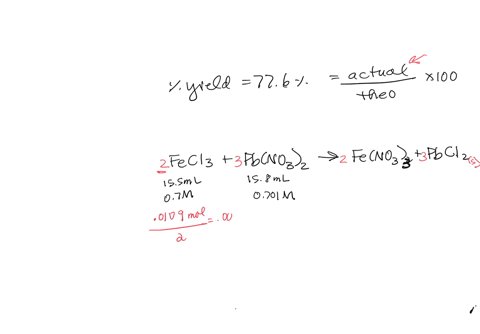 % yield = 77.6% = actual/theo × 100
2FeCl3 + 3Pb(NO3)2 → 2Fe(NO3)3 + 3PbCl2(s)
15.5mL 15.8mL
0.7M 0.701M
.0109 mol/2 = .00